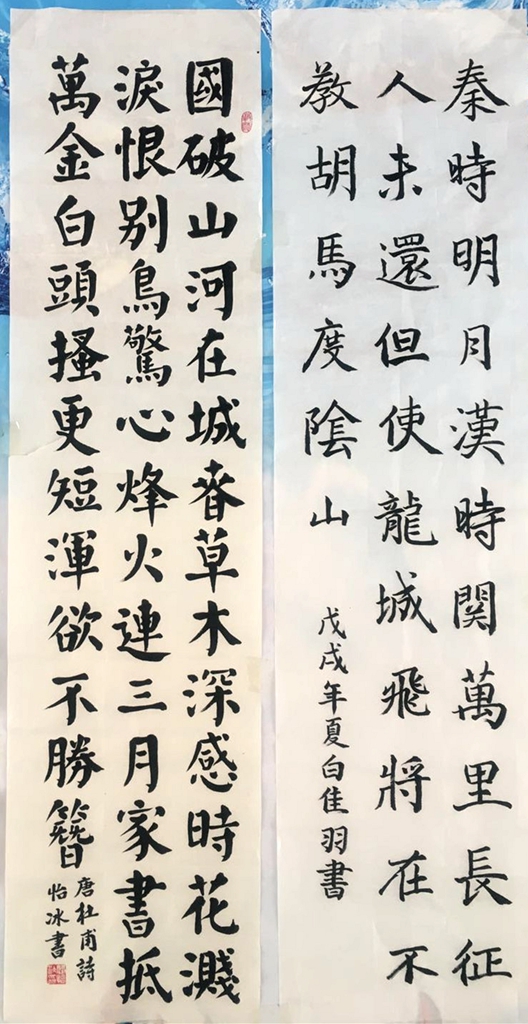 秦時明月漢時関萬里長征
人未還但使龍城飛將在不
教胡馬度陰山
戊戌年夏白佳羽書
國破山河在城春草木深感時花濺
淚恨别鳥驚心烽火連三月家書抵
萬金白頭搔更短渾欲不勝簪
唐杜甫詩
怡冰書